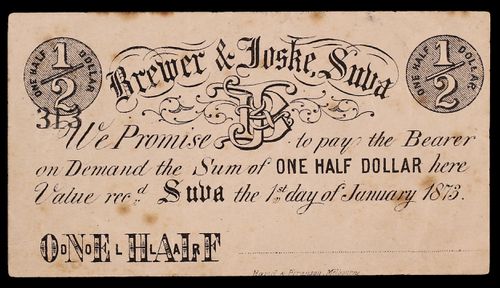 ONE HALF DOLLAR 1/2
Brewer & Joske, Suva
ONE HALF DOLLAR 1/2
313
We Promise to pay the Bearer
on Demand the Sum of ONE HALF DOLLAR here
Value recd Suva the 1st day of January 1873.
ONE HALF
DOLLAR
Melbourne